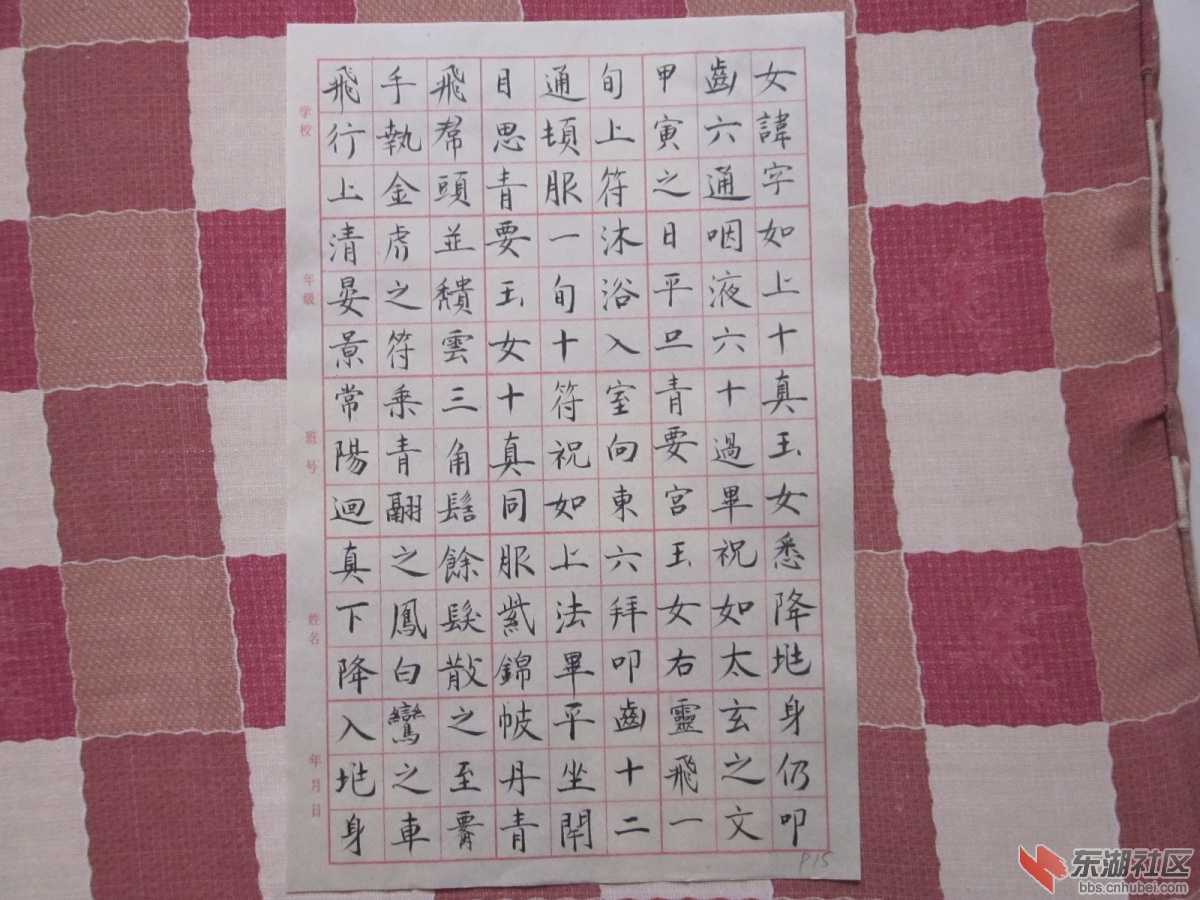 女諱字如上十真玉女悉降地身仍叩
齒六通咽液六十過畢祝如太玄之文
甲寅之日平旦青要宮玉女右靈飛一
旬上符沐浴入室向東六拜叩齒十二
通頓服一旬十符祝如上法畢平坐閇
目思青要玉女十真同服紫錦帔丹青
飛帬頭並穨雲三角髻餘髮散之至
手執金虎之符乘青翮之鳳白鸞之車
飛行上清晏景常陽迴真下降入地身
学校
年级
班号
姓名
年月日
P15
东湖社区
bbs.cnhubei.com